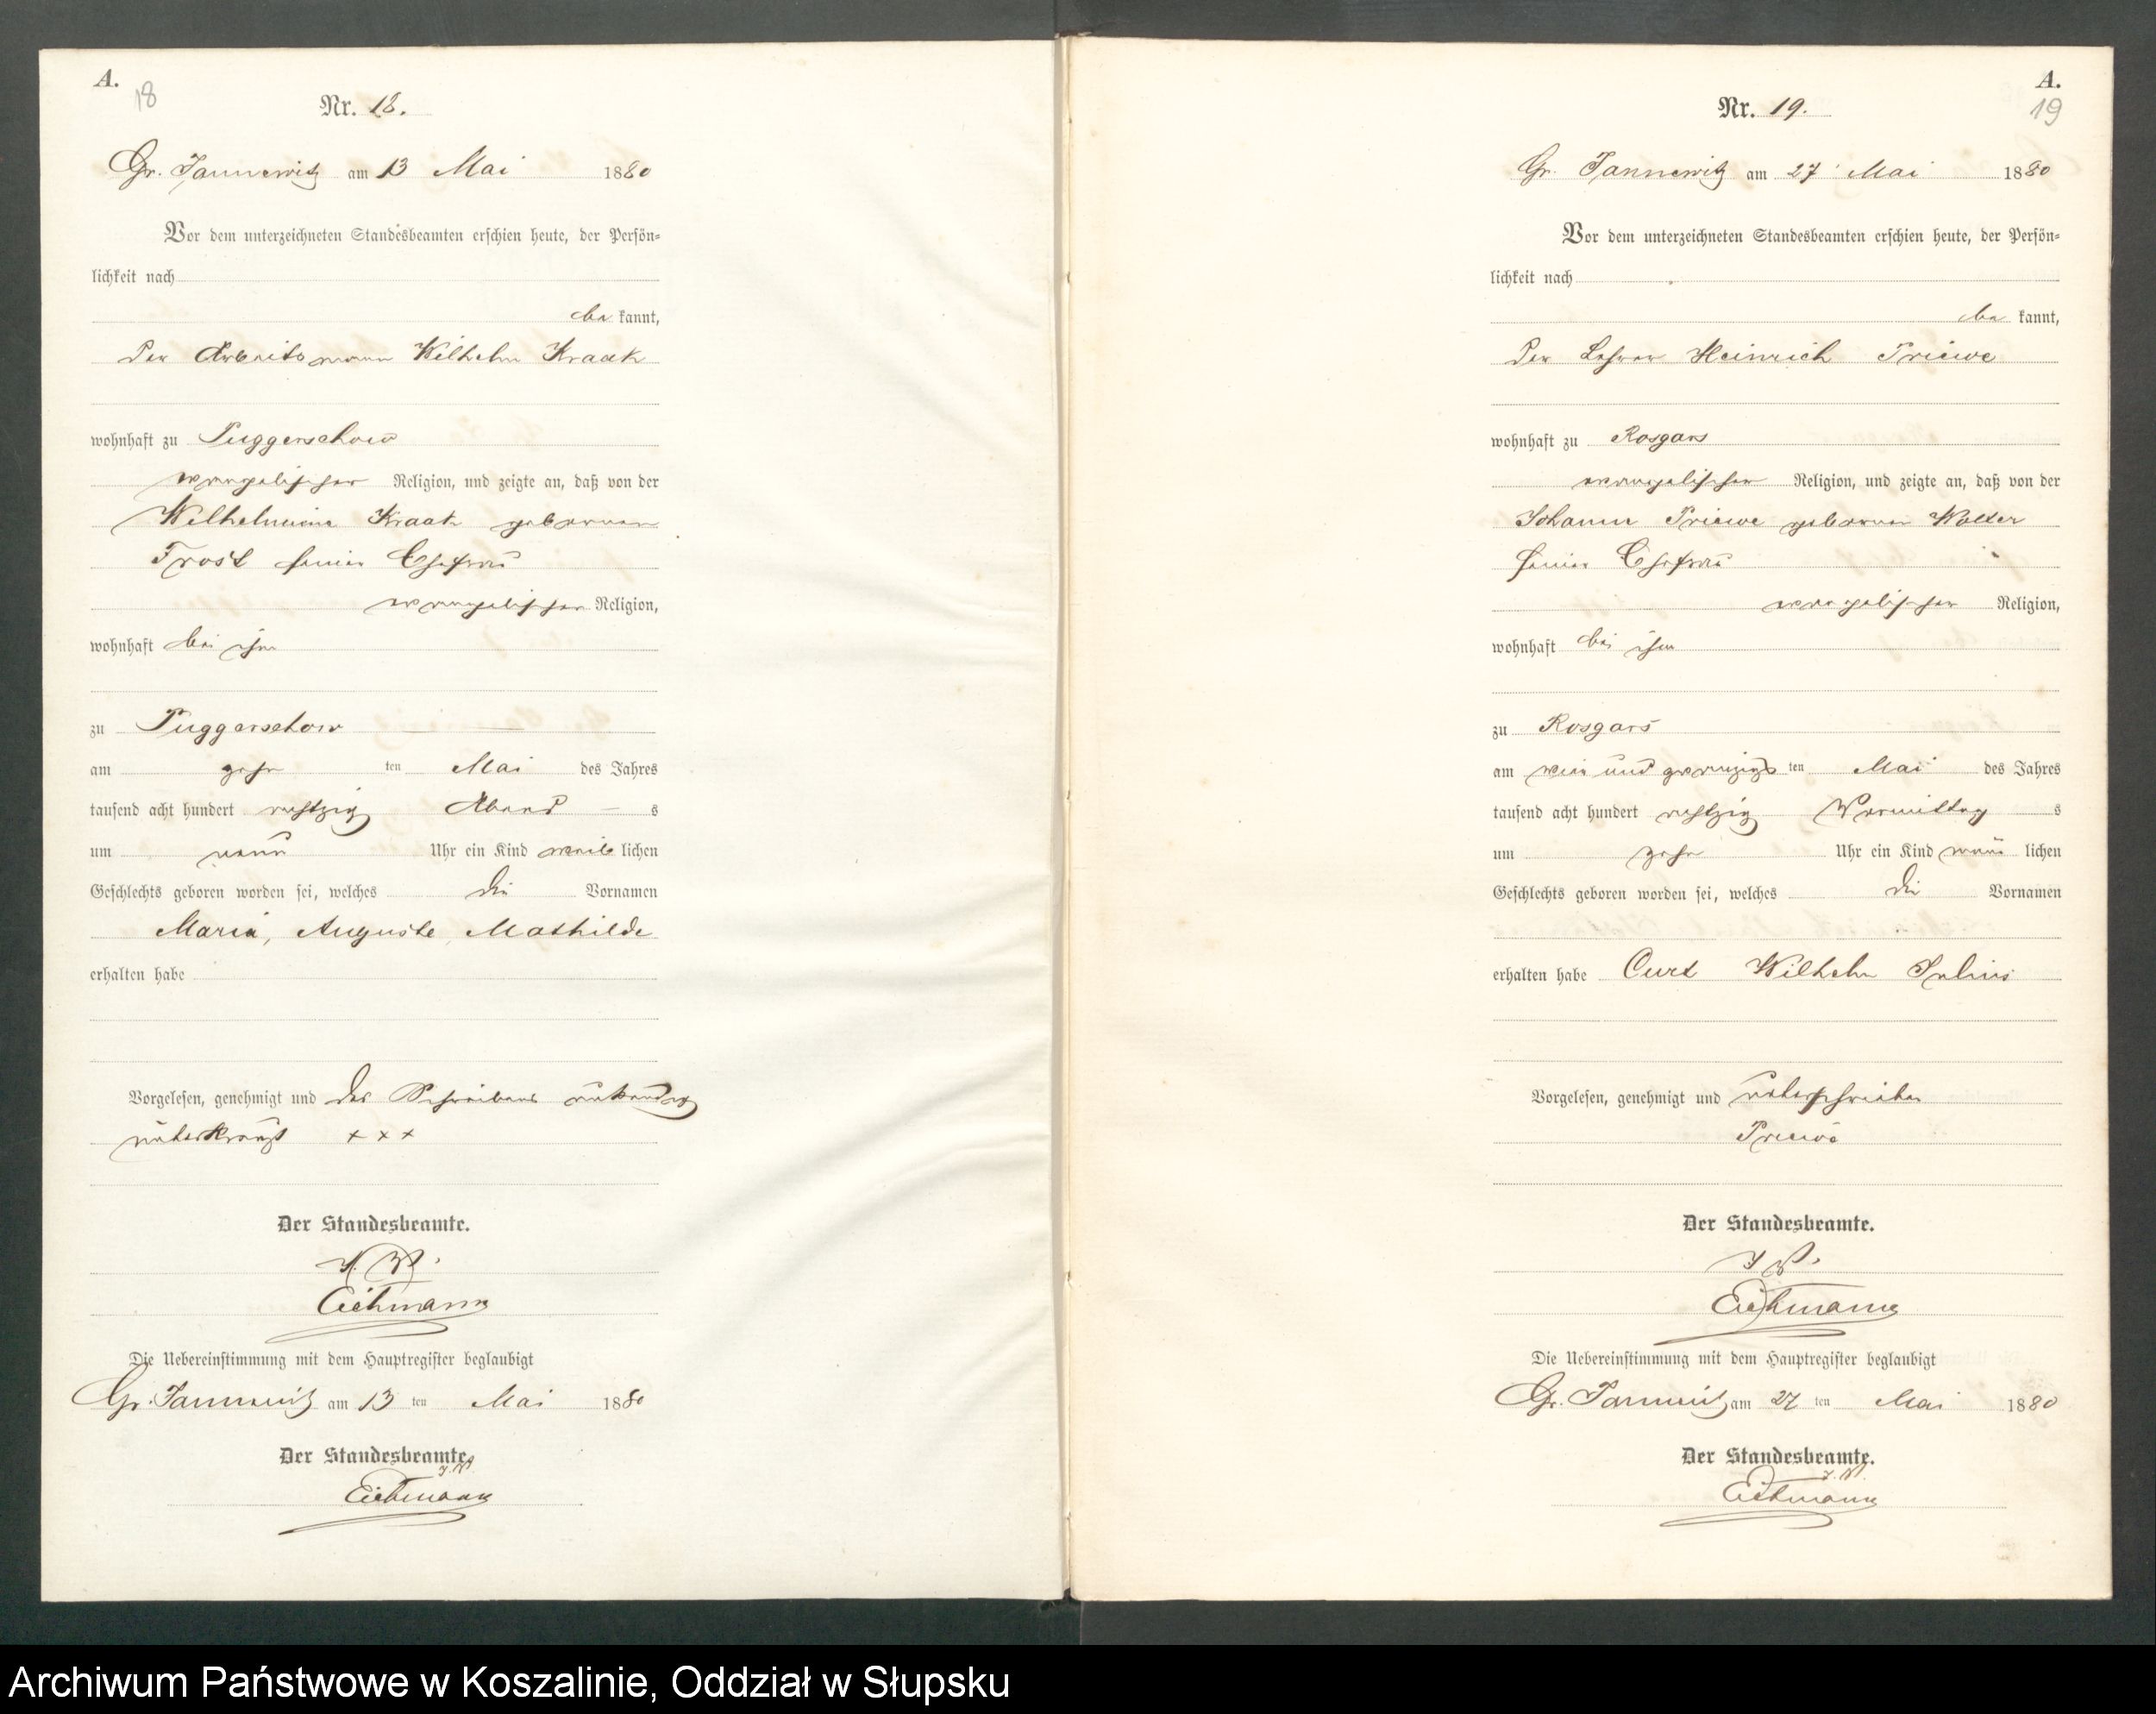 A.
18
Nr. 18.
Gr. Jannewitz am 13 Mai 1880
Vor dem unterzeichneten Standesbeamten erschien heute, der Persön-
lichkeit nach
be kannt,
der Arbeitsmann Wilhelm Kraak
wohnhaft zu Puggerschow
evangelischer Religion, und zeigte an, daß von der
Wilhelmine Kraak geborenen
Trost seiner Ehefrau
evangelischer Religion,
wohnhaft bei ihm
zu Puggerschow
am zehn ten Mai des Jahres
tausend acht hundert achtzig Abend s
um neun Uhr ein Kind weib lichen
Geschlechts geboren worden sei, welches die Vornamen
Maria, Auguste, Mathilde
erhalten habe
Vorgelesen, genehmigt und des Schreibens unkundig
unterkreuzt + + +
Der Standesbeamte.
J. V.
Eichmann
Die Uebereinstimmung mit dem Hauptregister beglaubigt
Gr. Jannewitz am 13 ten Mai 1880
Der Standesbeamte.
J. V.
Eichmann
A.
19
Nr. 19.
Gr. Jannewitz am 27 Mai 1880
Vor dem unterzeichneten Standesbeamten erschien heute, der Persön-
lichkeit nach
be kannt,
der Lehrer Heinrich Priewe
wohnhaft zu Rosgars
evangelischer Religion, und zeigte an, daß von der
Johanne Priewe geborenen Wolter
seiner Ehefrau
evangelischer Religion,
wohnhaft bei ihm
zu Rosgars
am ein und zwanzigs ten Mai des Jahres
tausend acht hundert achtzig Vormittag s
um zehn Uhr ein Kind männ lichen
Geschlechts geboren worden sei, welches die Vornamen
erhalten habe Curt Wilhelm Julius
Vorgelesen, genehmigt und unterschrieben
Priewe
Der Standesbeamte.
J. V.
Eichmann
Die Uebereinstimmung mit dem Hauptregister beglaubigt
Gr. Jannewitz am 27 ten Mai 1880
Der Standesbeamte.
J. V.
Eichmann
Archiwum Państwowe w Koszalinie, Oddział w Słupsku